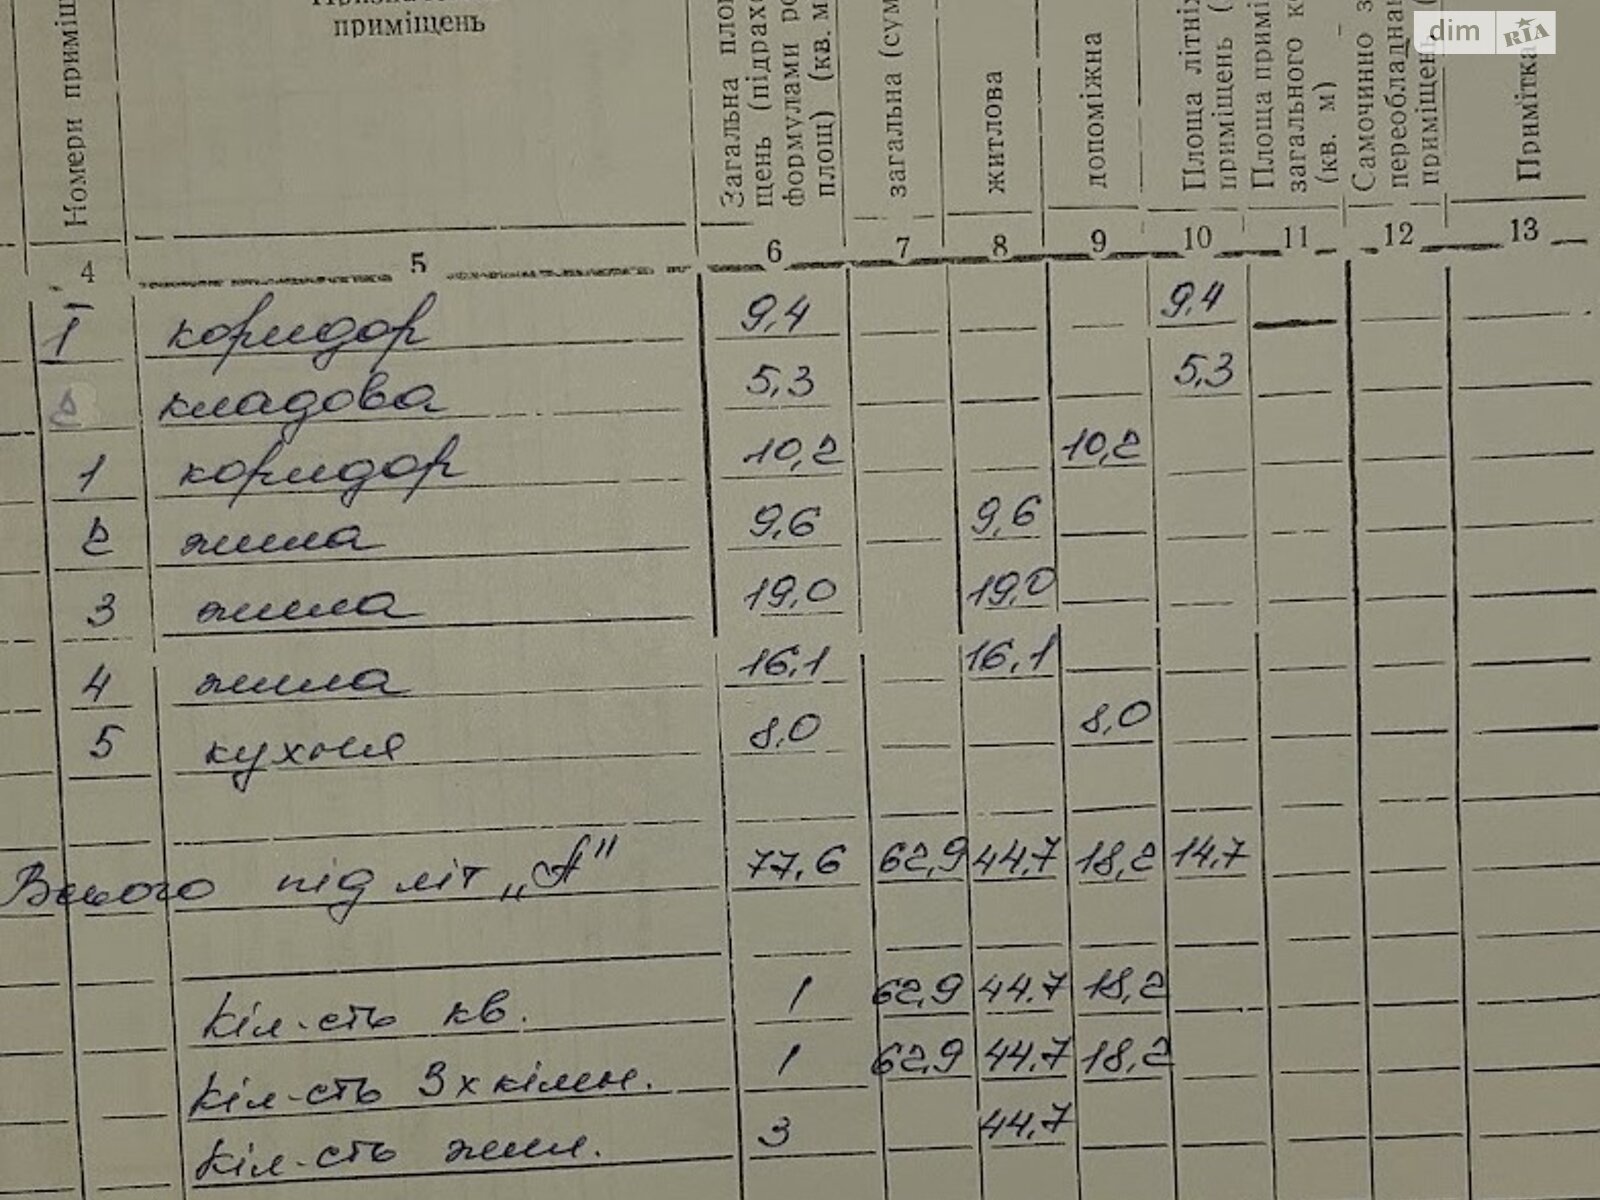 Номери приміщ
приміщень
Загальна пло
щень (підрах
формулами ро
площ) (кв. м
загальна (сум
житлова
допоміжна
Площа літніх
приміщень (
Площа примі
загального к
(кв. м)
Самочинно з
переобладнан
приміщень (
Примітка
dim RIA
4 5 6 7 8 9 10 11 12 13
I коридор 9,4 — — — 9,4 — — —
кладова 5,3 — — — 5,3 — — —
1 коридор 10,2 — — 10,2 — — — —
2 жила 9,6 — 9,6 — — — — —
3 жила 19,0 19,0 — — — — —
4 жила 16,1 — 16,1 — — — — —
5 кухоня 8,0 — — 8,0 — — — —
Всього під літ „А" 77,6 62,9 44,7 18,2 14,7
Кіл-сть кв. 1 62,9 44,7 18,2
Кіл-сть 3х кімн. 1 62,9 44,7 18,2
Кіл-сть жил. 3 44,7